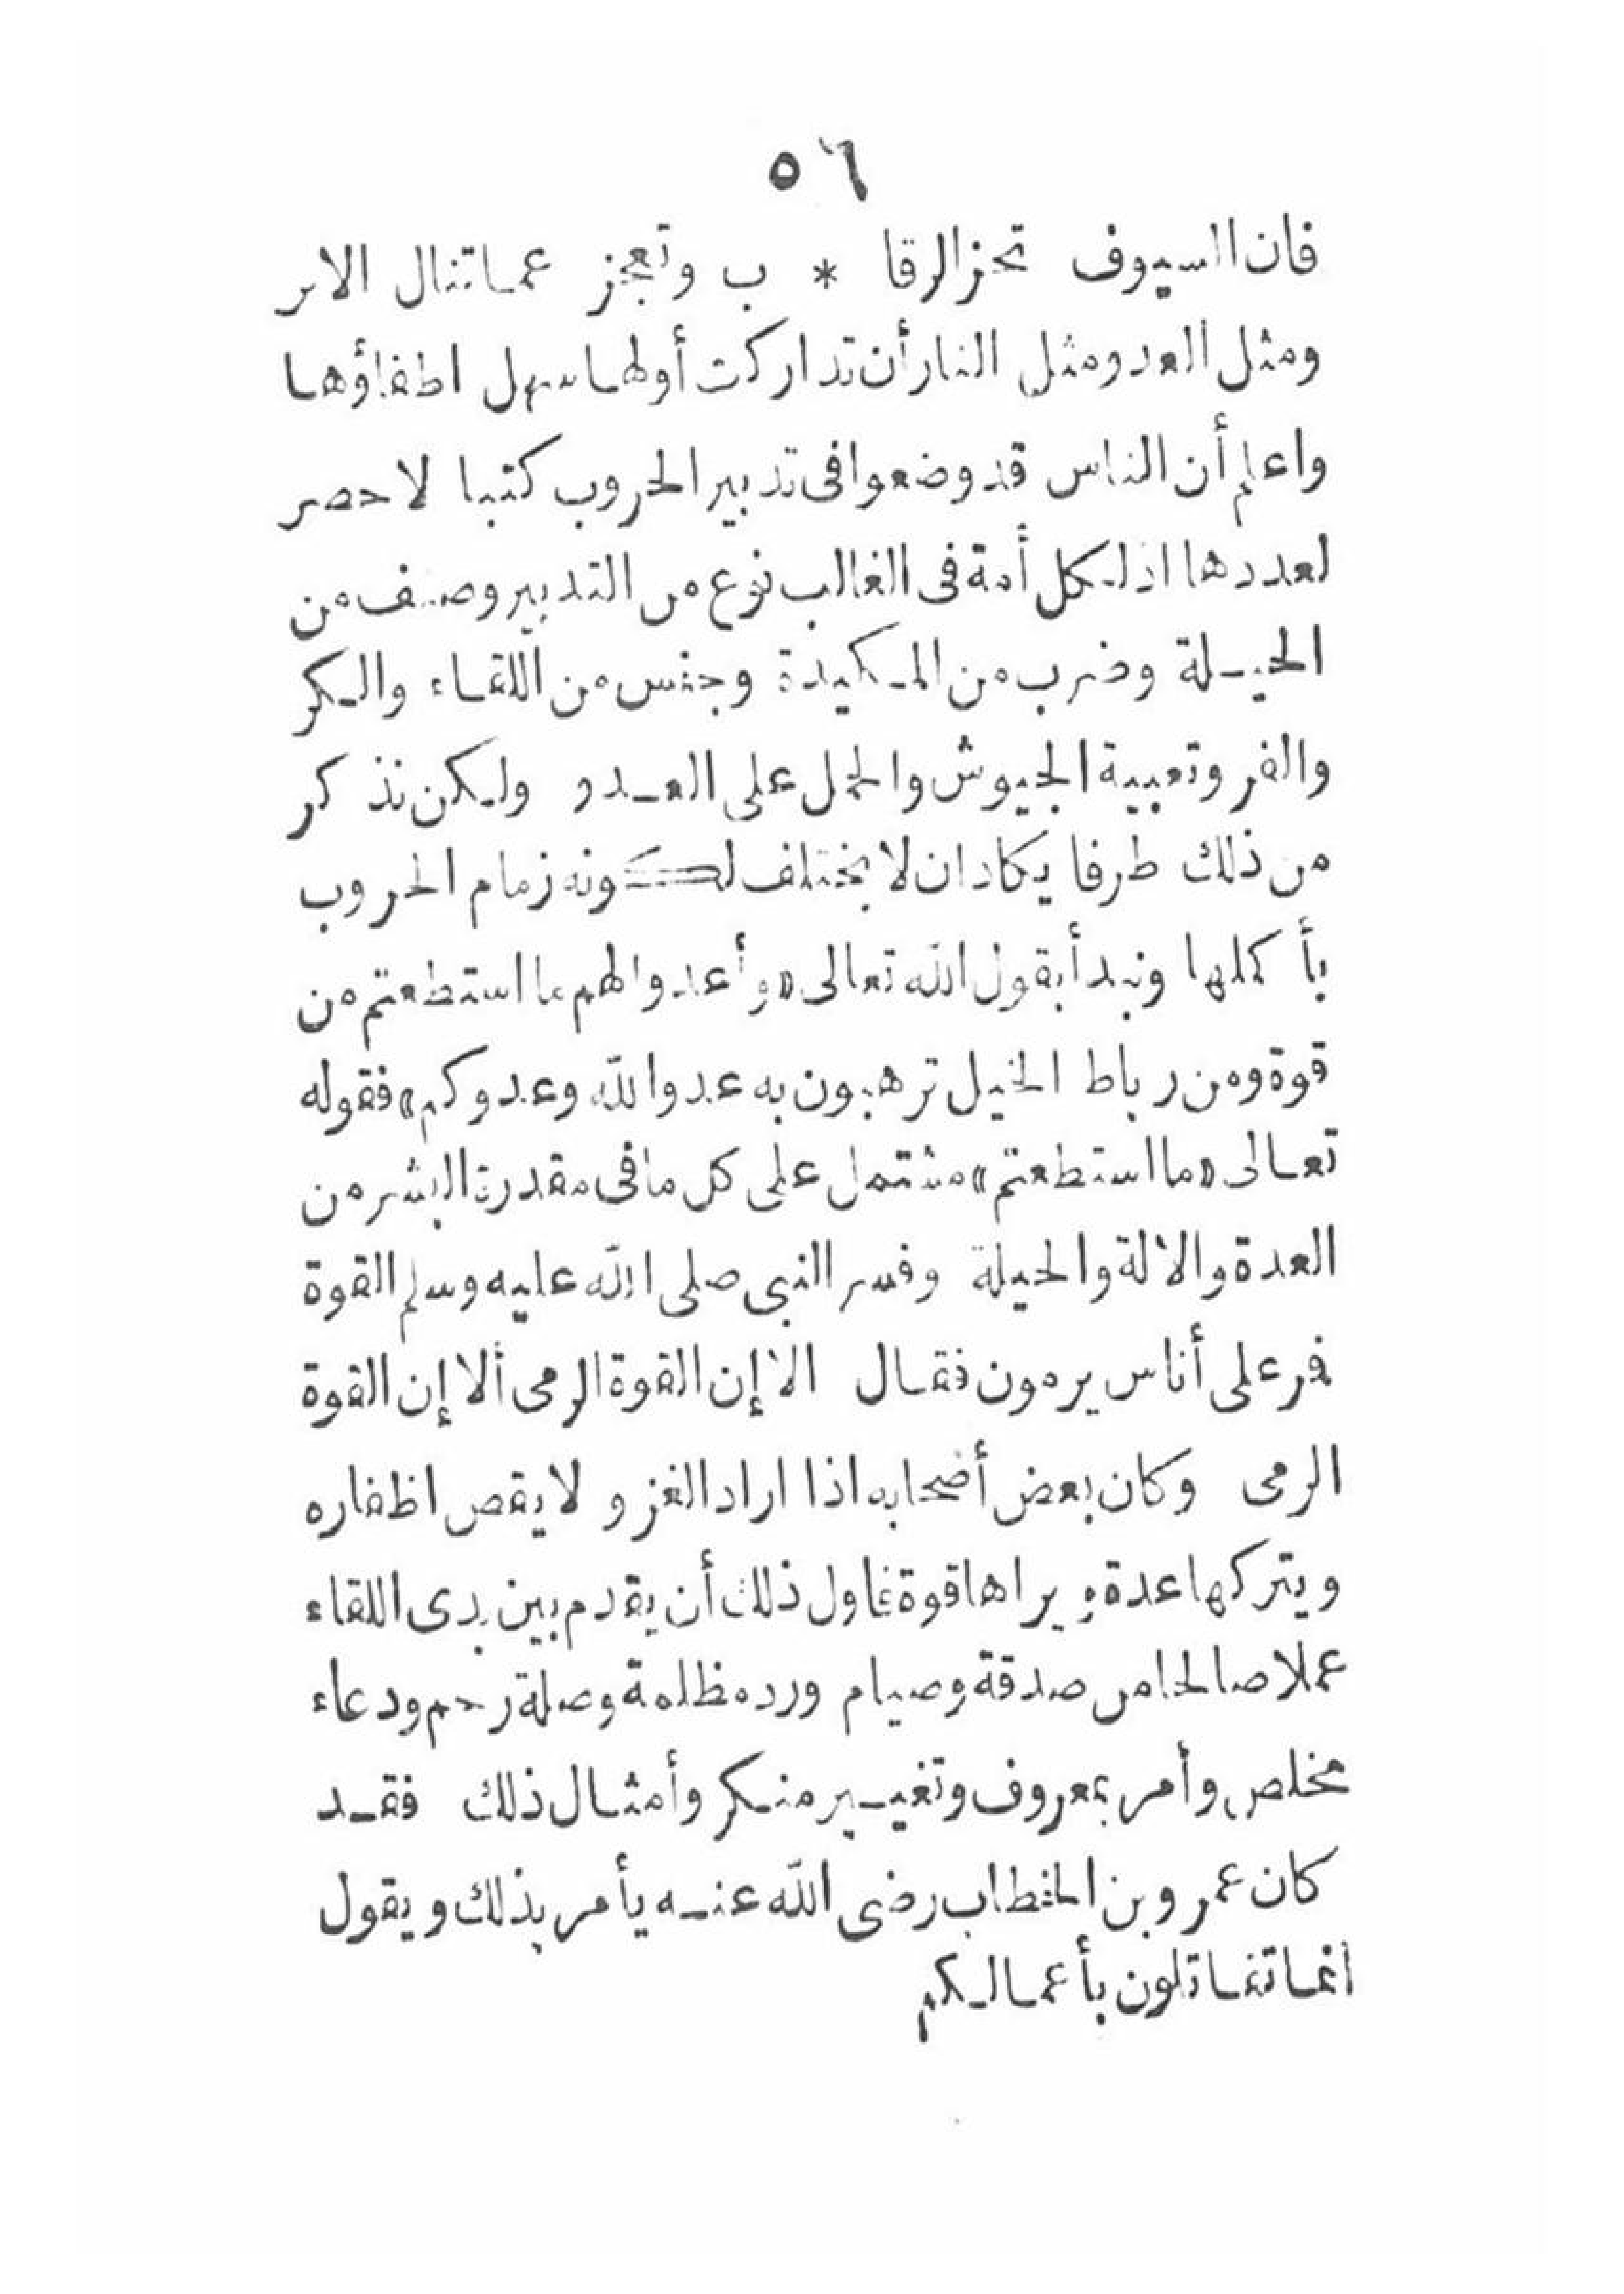 ٥٦
فان السيوف تحز الرقا * ب وتعجز عما تنال الابر
ومثل العدو مثل النار أن تداركت أولها سهل اطفاؤها
واعلم أن الناس قد وضعوا فى تدبير الحروب كتبا لا حصر
لعددها اذ لكل أمة فى الغالب نوع من التدبير وصنف من
الحيلة وضرب من المكيدة وجنس من اللقاء والكر
والفر وتعبية الجيوش والحمل على العدو ولكن نذكر
من ذلك طرفا يكاد ان لا يختلف لكونه زمام الحروب
بأكملها ونبدأ بقول الله تعالى «وأعدوا لهم ما استطعتم من
قوة ومن رباط الخيل ترهبون به عدو الله وعدوكم» فقوله
تعالى «ما استطعتم» مشتمل على كل ما فى مقدرة البشر من
العدة والالة والحيلة وفسر النبى صلى الله عليه وسلم القوة
فمر على أناس يرمون فقال الا إن القوة الرمى ألا إن القوة
الرمى وكان بعض أصحابه اذا اراد الغزو لا يقص اظفاره
ويتركها عدة ويراها قوة فاول ذلك أن يقدم بين يدى اللقاء
عملا صالحا من صدقة وصيام ورد مظلمة وصلة رحم ودعاء
مخلص وأمر بمعروف وتغيير منكر وأمثال ذلك فقد
كان عمرو بن الخطاب رضى الله عنه يأمر بذلك ويقول
انما تقاتلون بأعمالكم